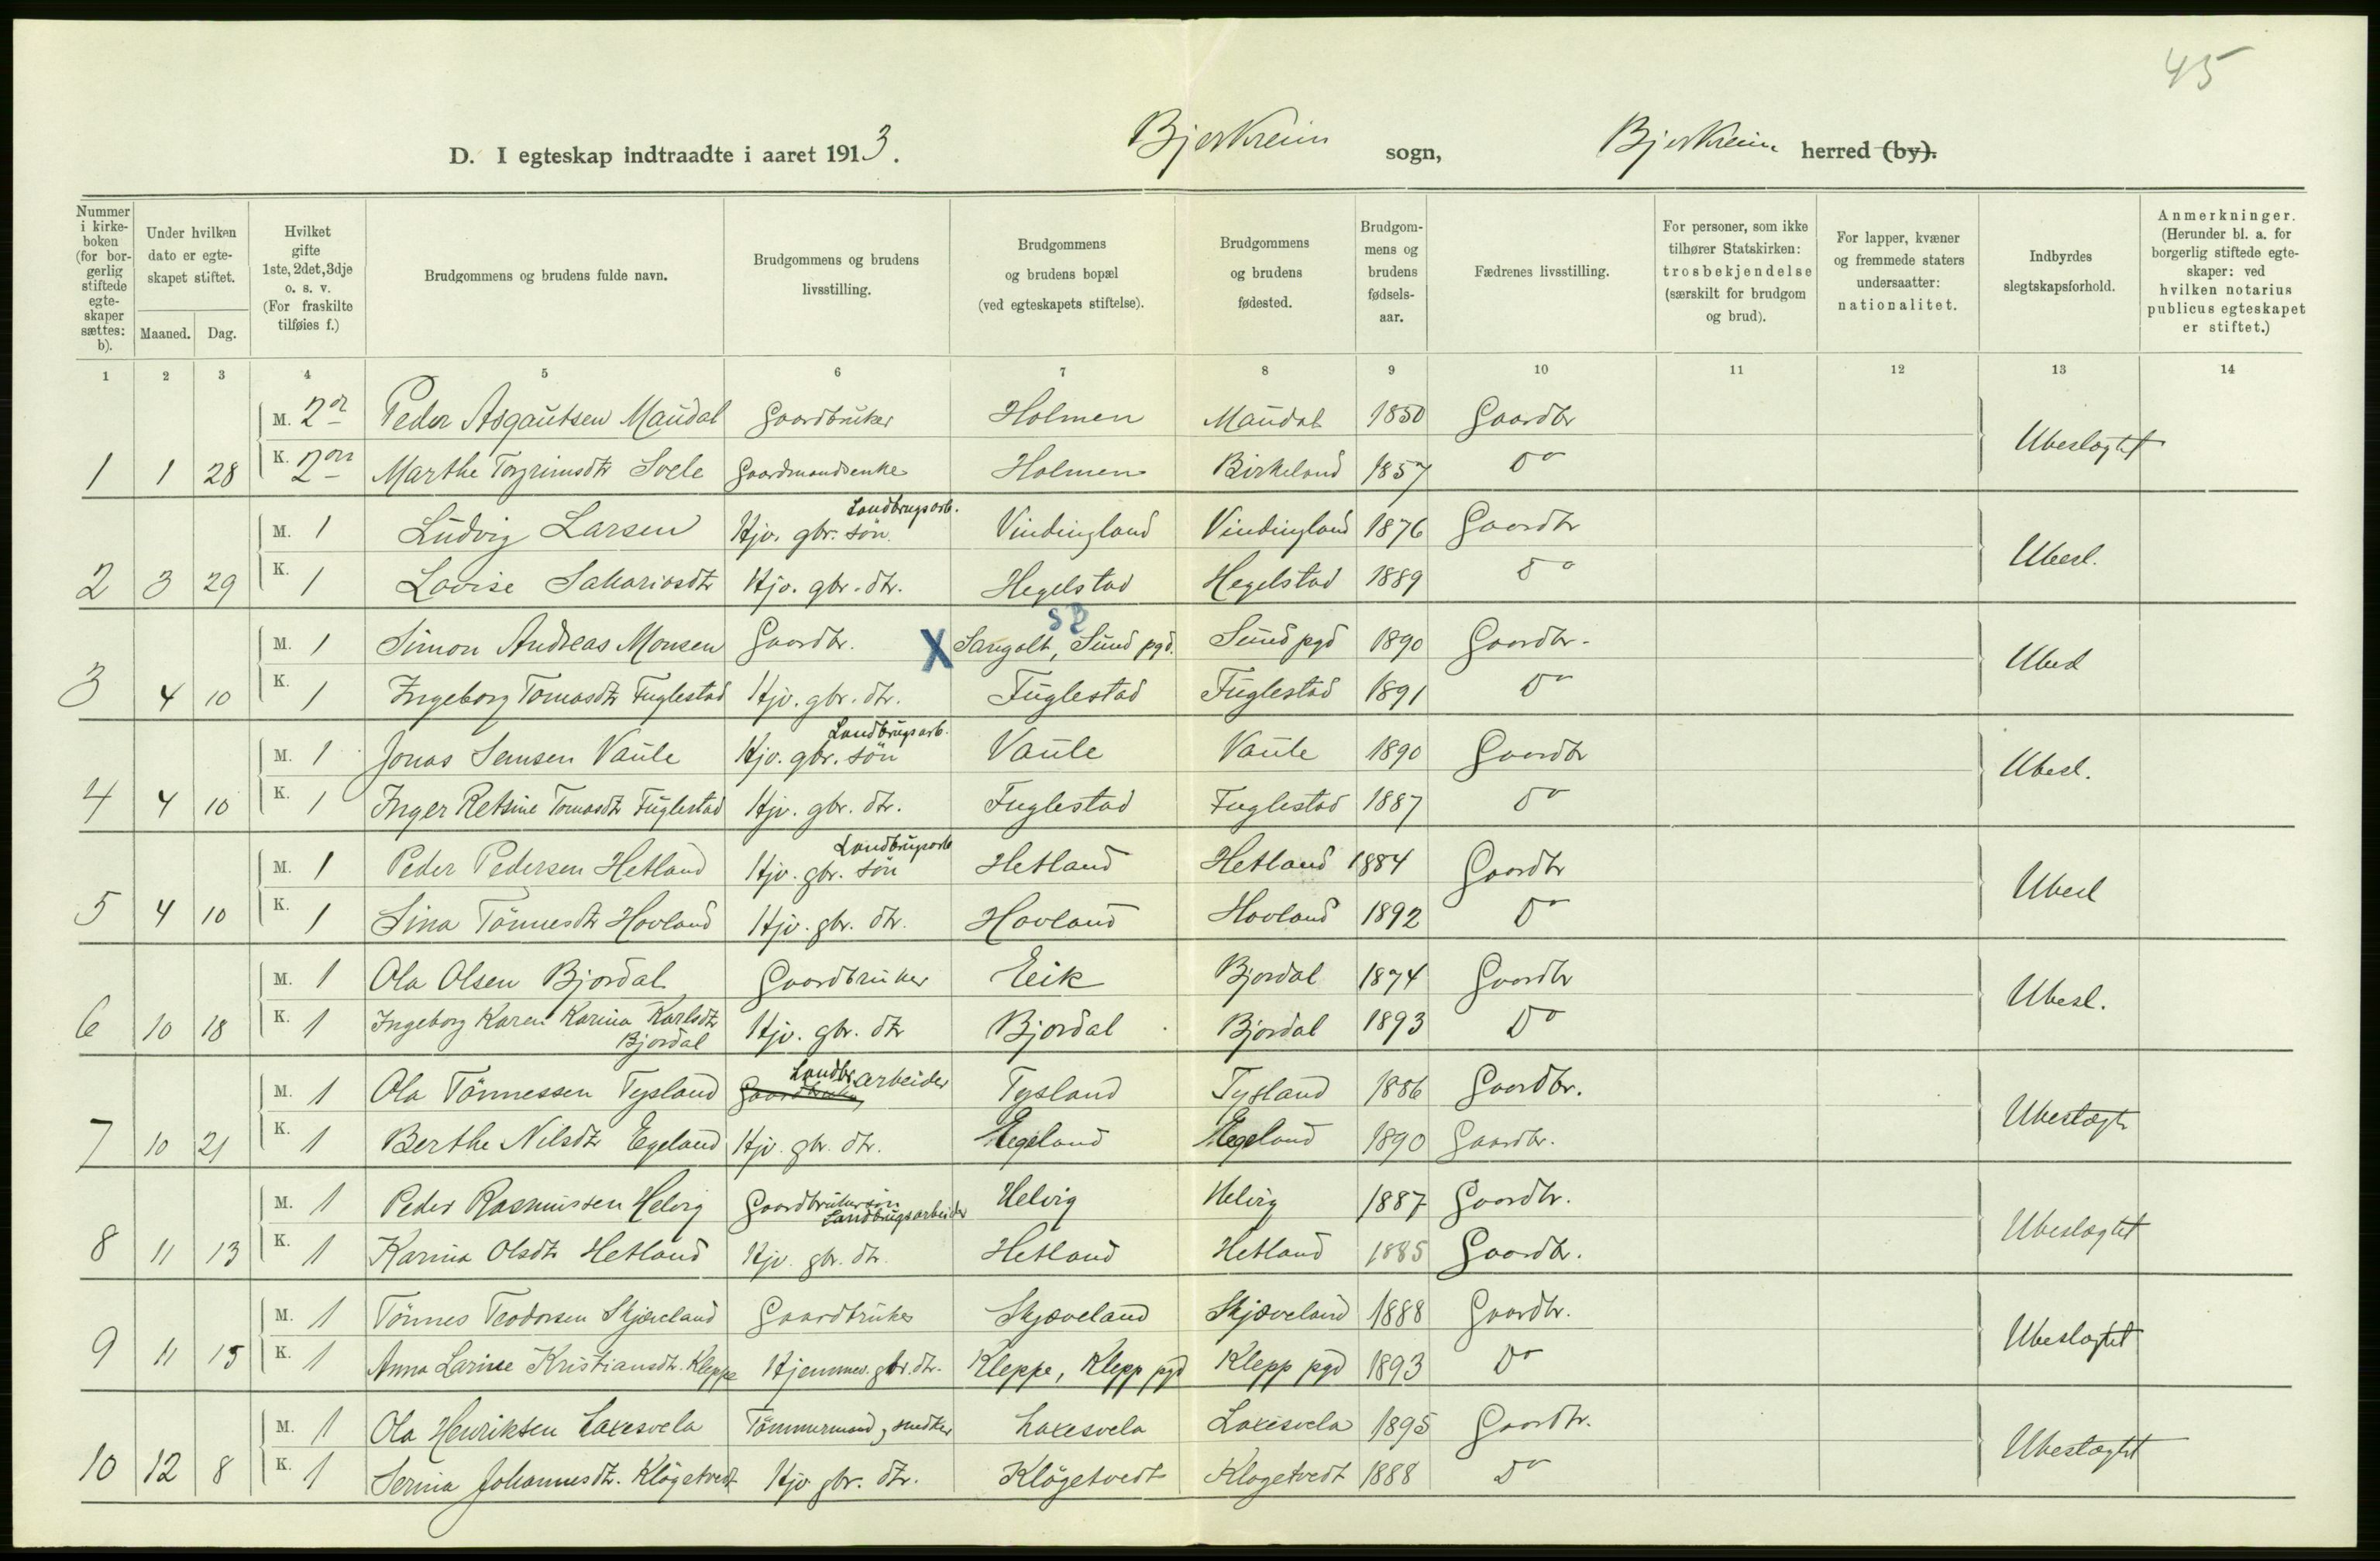 45
D. I egteskap indtraadte i aaret 1913. Bjerkreim sogn, Bjerkreim herred (by).
Nummer i kirke-boken (for bor-gerlig stiftede egte-skaper sættes: b).
Under hvilken dato er egte-skapet stiftet.
Maaned. Dag.
Hvilket gifte 1ste, 2det, 3dje o. s. v. (For fraskilte tilføies f.)
Brudgommens og brudens fulde navn.
Brudgommens og brudens livsstilling.
Brudgommens og brudens bopæl (ved egteskapets stiftelse).
Brudgommens og brudens fødested.
Brudgom-mens og brudens fødsels-aar.
Fædrenes livsstilling.
For personer, som ikke tilhører Statskirken: trosbekjendelse (særskilt for brudgom og brud).
For lapper, kvæner og fremmede staters undersaatter: nationalitet.
Indbyrdes slegtskapsforhold.
Anmerkninger. (Herunder bl. a. for borgerlig stiftede egte-skaper: ved hvilken notarius publicus egteskapet er stiftet.)
1 2 3 4 5 6 7 8 9 10 11 12 13 14
M. 2 Peder Asgautsen Maudal Gaardbruker Holmen Maudal 1850 Gaardbr Ubeslægtet
1 1 28 K. 2 Marthe Torgrimsdtr Svele Gaardmandsenke Holmen Birkeland 1857 Do
Landbrugsarb.
M. 1 Ludvig Larsen Hjv. gbr. søn Vindingland Vindingland 1876 Gaardbr Ubesl.
2 3 29 K. 1 Lovise Sakariasdtr Hjv. gbr. dtr. Hegelstad Hegelstad 1889 Do
M. 1 Simon Andreas Monsen Gaardbr. X Sangolt, Sund pgd. Sund pgd 1890 Gaardbr. Ubesl
3 4 10 K. 1 Ingeborg Tomasdtr Fuglestad Hjv. gbr. dtr. Fuglestad Fuglestad 1891 Do
Landbrugsarb.
M. 1 Jonas Samsen Vaule Hjv. gbr. søn Vaule Vaule 1890 Gaardbr Ubesl.
4 4 10 K. 1 Inger Retsine Tomasdtr Fuglestad Hjv. gbr. dtr. Fuglestad Fuglestad 1887 Do
Landbrugsarb
M. 1 Peder Pedersen Hetland Hjv. gbr. søn Hetland Hetland 1884 Gaardbr Ubesl
5 4 10 K. 1 Sina Tønnesdtr Hovland Hjv. gbr. dtr. Hovland Hovland 1892 Do
M. 1 Ola Olsen Bjordal Gaardbruker Eik Bjordal 1874 Gaardbr Ubesl.
6 10 18 K. 1 Ingeborg Karen Karina Karlsdtr Bjordal Hjv. gbr. dtr Bjordal Bjordal 1893 Do
Landbr.arbeider
M. 1 Ola Tønnessen Tysland Gaardbruker Tysland Tysland 1886 Gaardbr. Ubeslægt
7 10 21 K. 1 Berthe Nilsdtr Egeland Hjv. gbr. dtr. Egeland Egeland 1890 Gaardbr.
M. 1 Peder Rasmussen Helvig Gaardbrukersøn Landbrugsarbeider Helvig Helvig 1887 Gaardbr. Ubeslægtet
8 11 13 K. 1 Karina Olsdtr Hetland Hjv. gbr. dtr. Hetland Hetland 1885 Gaardbr.
M. 1 Tønnes Teodorsen Skjæveland Gaardbruker Skjæveland Skjæveland 1888 Gaardbr. Ubeslægtet
9 11 15 K. 1 Anna Larine Kristiansdtr. Kleppe Hjemmev. gbr. dtr. Kleppe, Klepp pgd Klepp pgd 1893 Do
M. 1 Ola Henriksen Laxesvela Tømmermand, snedker Laxesvela Laxesvela 1895 Gaardbr. Ubeslægtet
10 12 8 K. 1 Serina Johannesdtr. Kløgetvedt Hjv gbr. dtr. Kløgetvedt Kløgetvedt 1888 Do